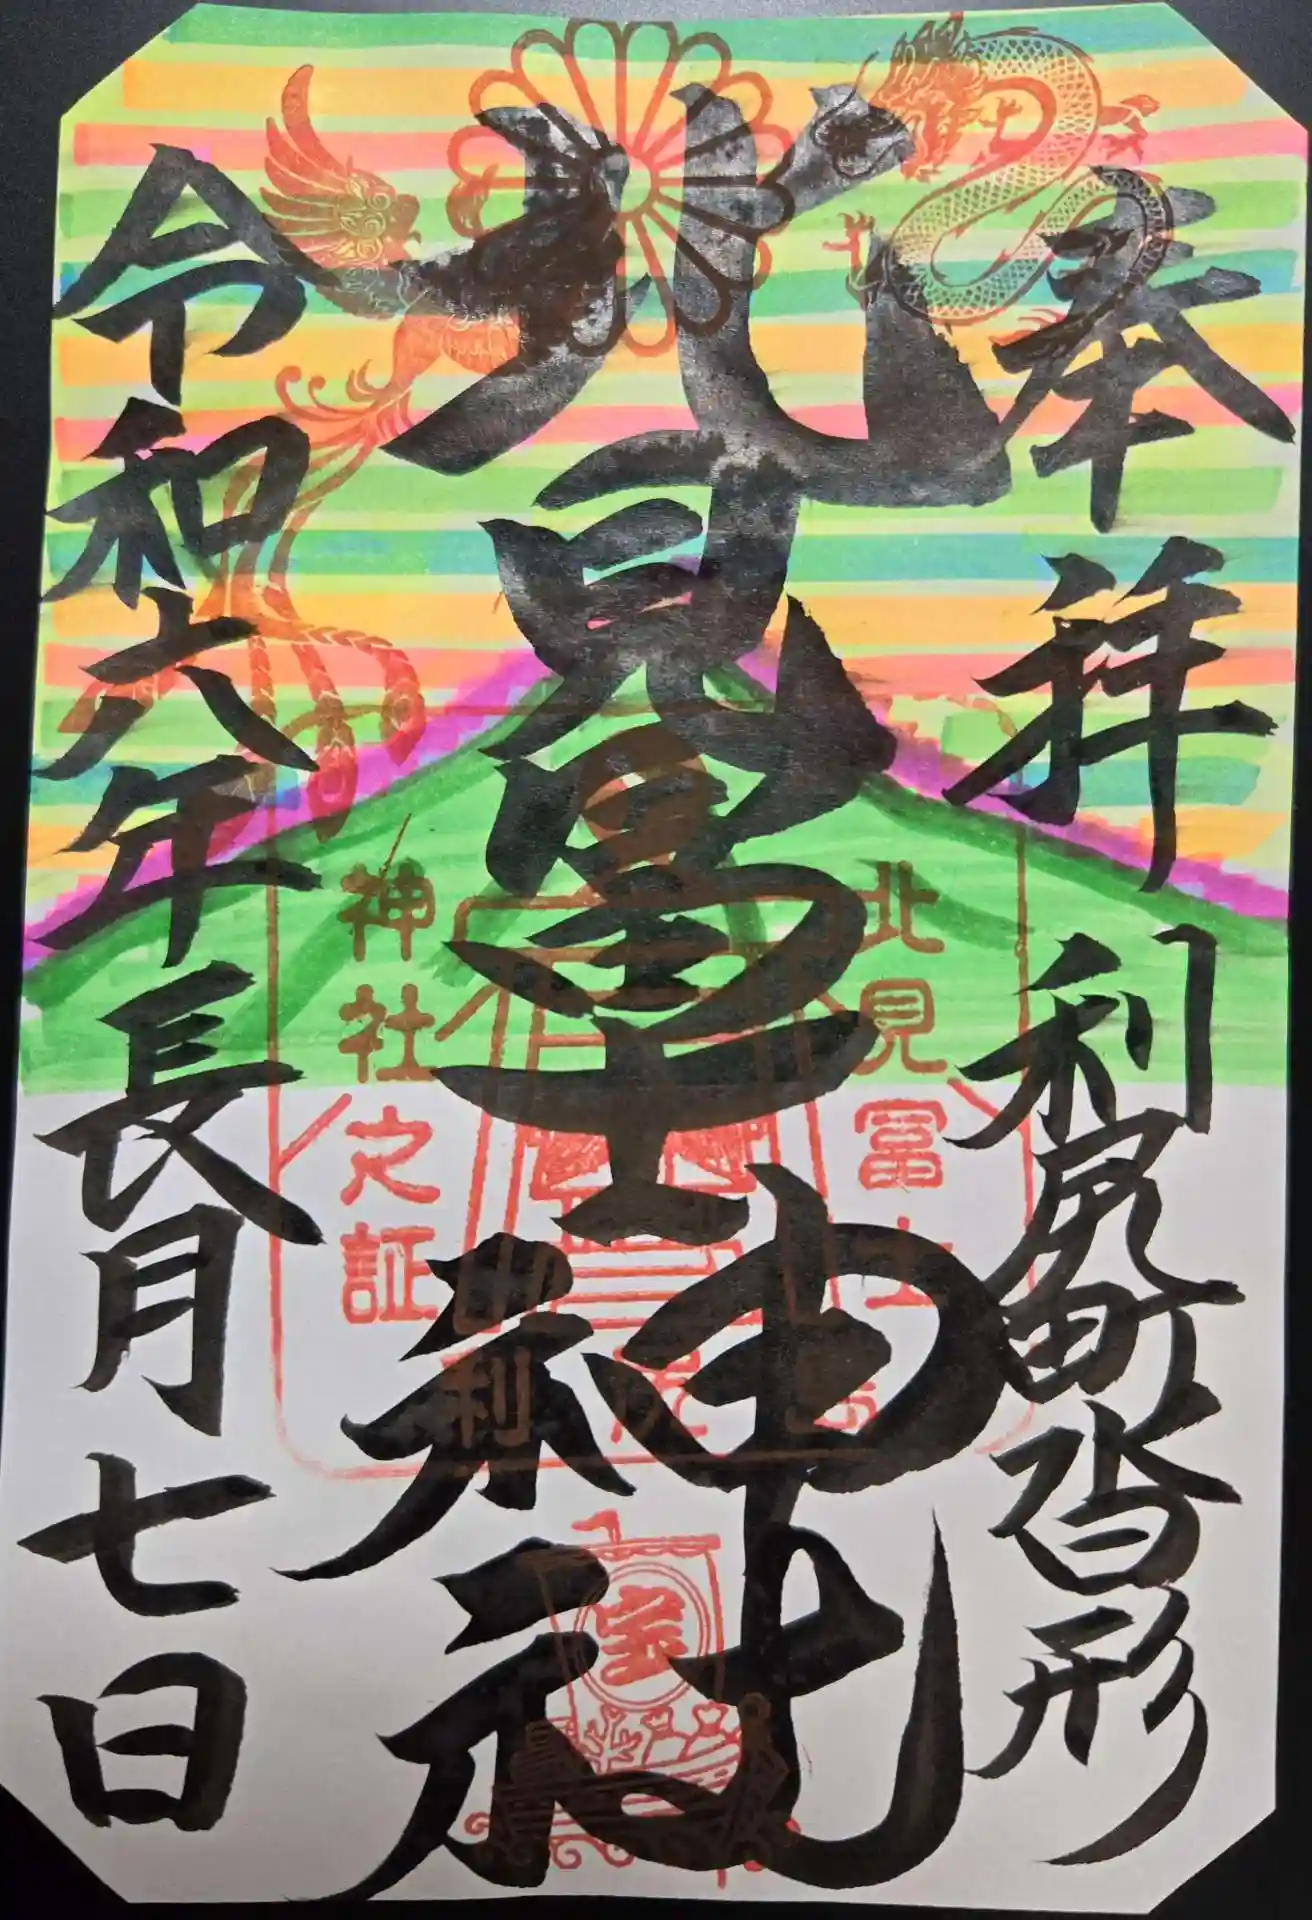 奉拝 利尻町沓形
北見富士神社
令和六年長月七日
北見富士
神社之証
利
宝